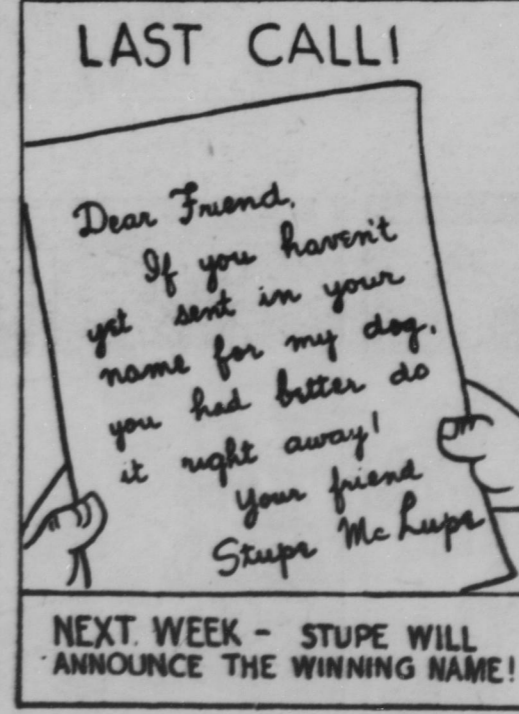 LAST CALL!
Dear Friend,
If you haven't
yet sent in your
name for my dog,
you had better do
it right away!
Your friend
Stupe McLupe
NEXT WEEK - STUPE WILL
ANNOUNCE THE WINNING NAME!